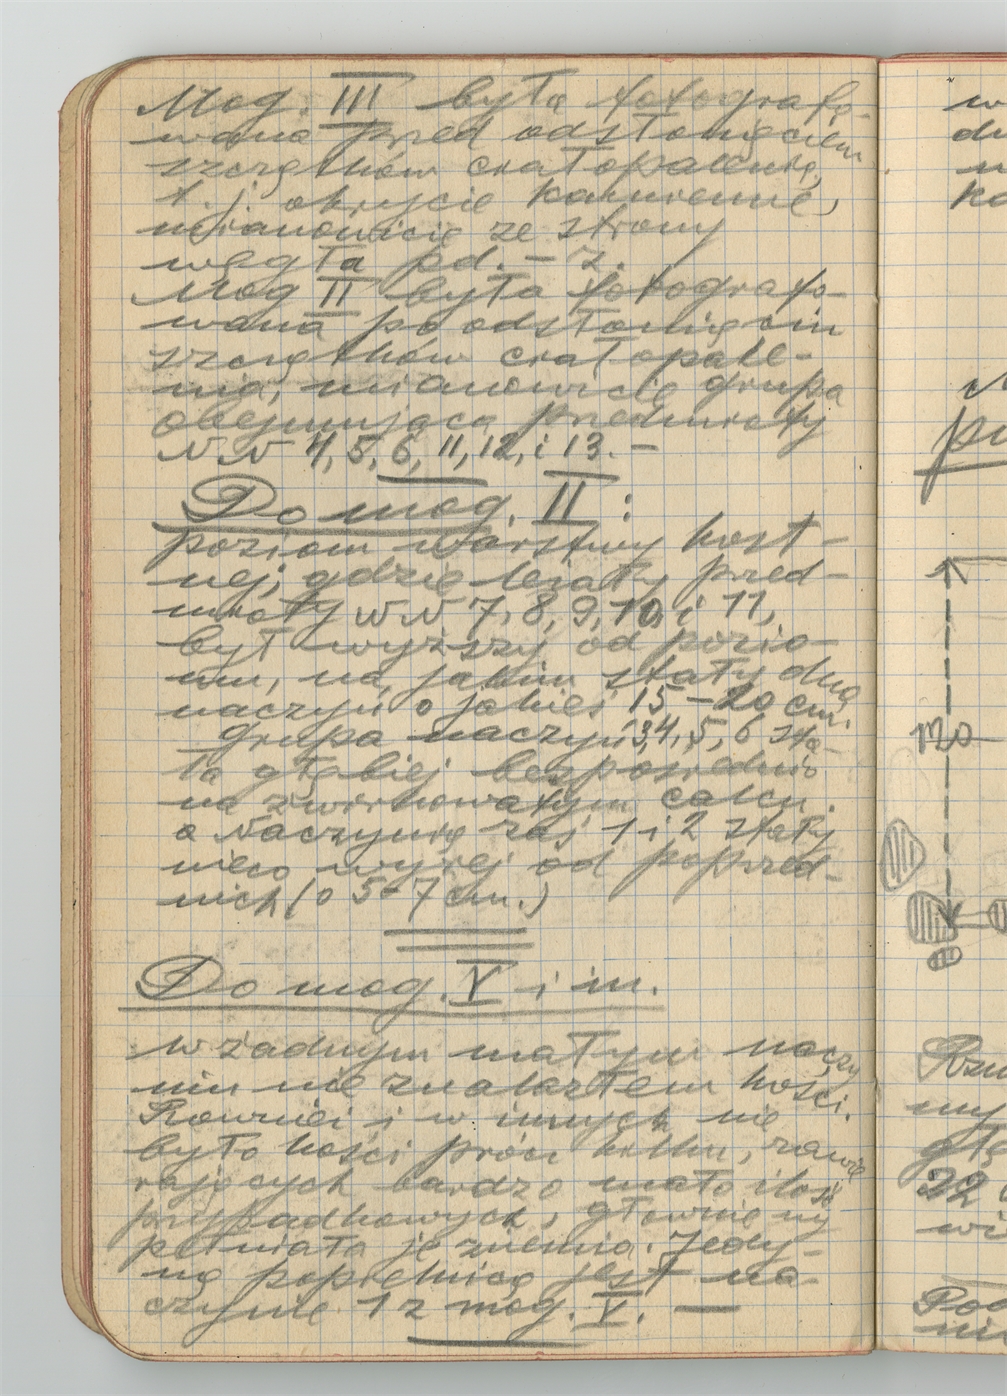 Mog. III była fotografo-
wana przed odsłonięciem
szczątków ciałopalenia,
t. j. okrycie kamienne,
mianowicie ze strony
węgła pd. - z.
Mog II była fotografo-
wana po odsłonięciu
szczątków ciałopale-
nia, mianowicie grupa
obejmująca przedmioty
N.N 4, 5, 6, 11, 12, i 13. -
Do mog. II :
poziom warstwy kost-
nej, gdzie leżały przed-
mioty N N 7, 8, 9, 10, i 11,
był wyższy od pozio-
mu, na jakim stały dna
naczyń o jakieś 15 - 20 cm.
Grupa naczyń 3,4, 5, 6 sta-
ła głębiej bezpośrednio
na żwirkowatym calcu.
a Naczynie zaś 1 i 2 stały
nieco wyżej od poprzed-
nich (o 5-7 cm.)
Do mog. V i in.
w żadnym małym naczy
niu nie znalazłem kości.
Również i w innych nie
było kości prócz kilku, zawie
rających bardzo mało ilość
przypadkowych, głównie wy
pełniała je ziemia. Jedy-
ną popielnicą jest na-
czynie 1 z mog. V. —
w
du
ka
pu
120
my
głę
22
wi